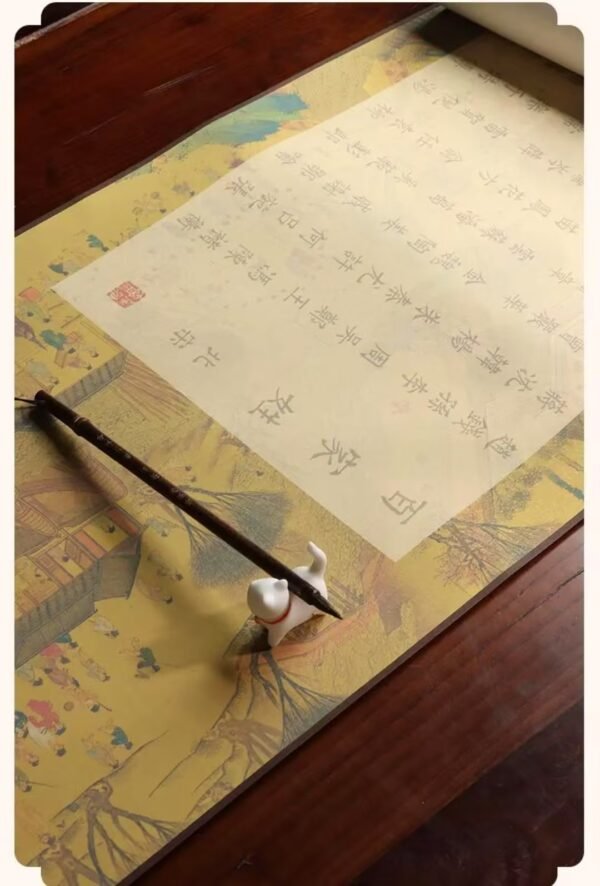 百家姓 北宋
趙錢孫李 周吳鄭王 馮陳褚衛
蔣沈韓楊 朱秦尤許 何呂施張
曹嚴華 金魏陶姜 戚謝鄒喻
章 雲蘇潘葛 奚范彭郎
苗鳳花方 俞任袁柳
岑薛 雷賀倪湯